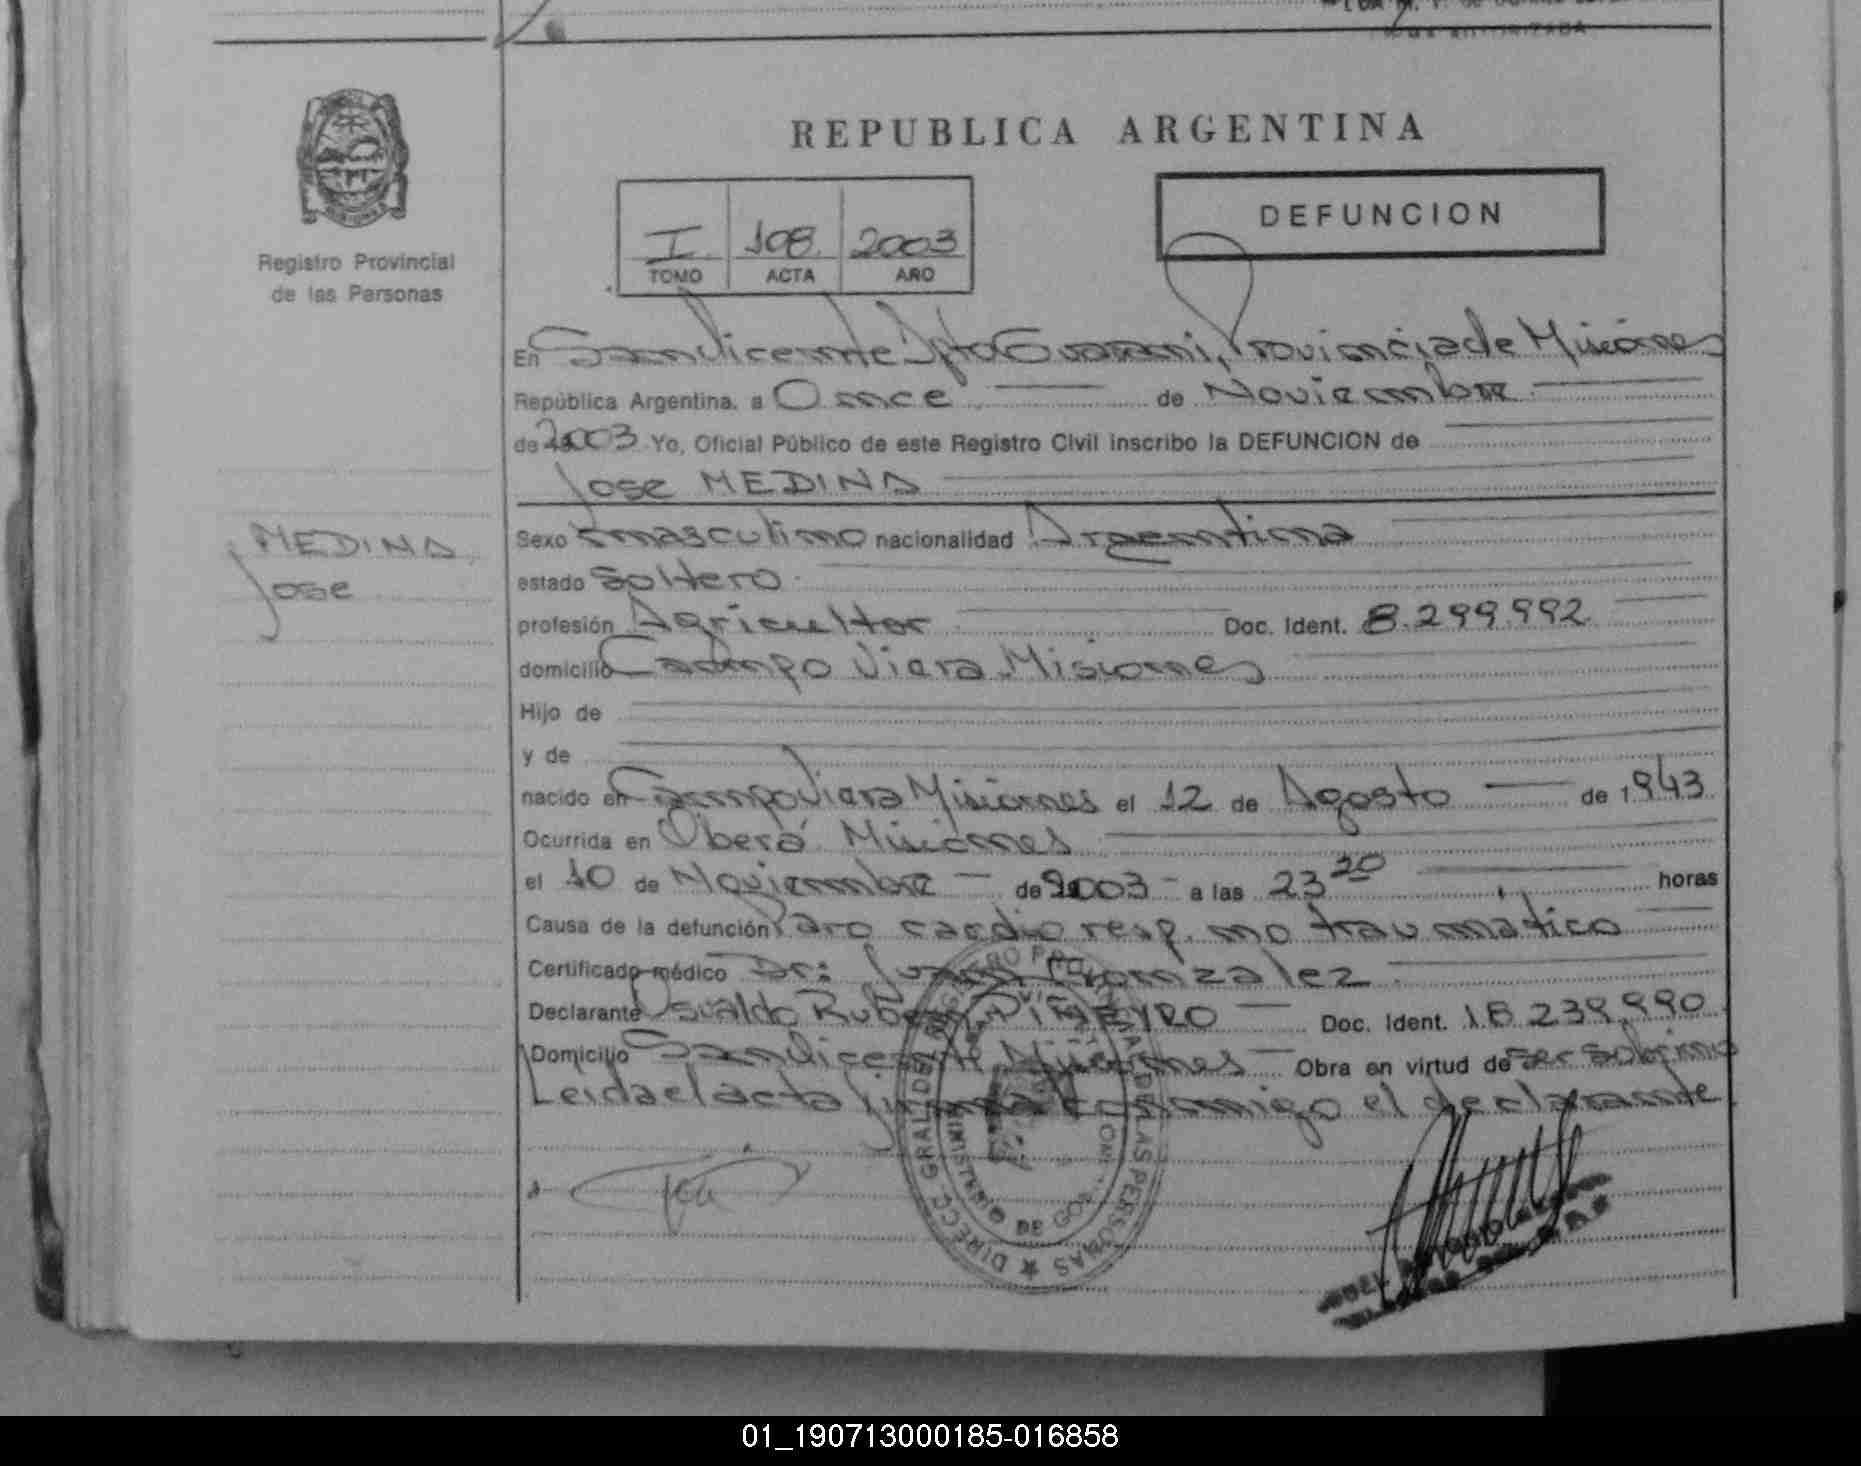 REPUBLICA ARGENTINA
DEFUNCION
I 108 2003
TOMO ACTA AÑO
Registro Provincial
de las Personas
En San Vicente Dpto Guarani, Provincia de Misiones
República Argentina, a Once de Noviembre
de 2003 Yo, Oficial Público de este Registro Civil inscribo la DEFUNCION de
Jose MEDINA
MEDINA
Jose
Sexo masculino nacionalidad Argentina
estado soltero
profesión Agricultor Doc. Ident. 8.299.992
domicilio Campo Viera Misiones
Hijo de
y de
nacido en Campo Viera Misiones el 12 de Agosto de 1943
Ocurrida en Oberá Misiones
el 10 de Noviembre de 2003 a las 23 20 horas
Causa de la defunción Paro cardio resp. no traumático
Certificado médico Dr: Juan Gonzalez
Declarante Osvaldo Ruben PIÑEYRO Doc. Ident. 18.239.990
Domicilio San Vicente Misiones Obra en virtud de ser sobrino
Leida el acta firma conmigo el declarante
DIRECC. GRAL. DEL REGISTRO PROVINCIAL DE LAS PERSONAS
MINISTERIO DE GOB.
01_190713000185-016858